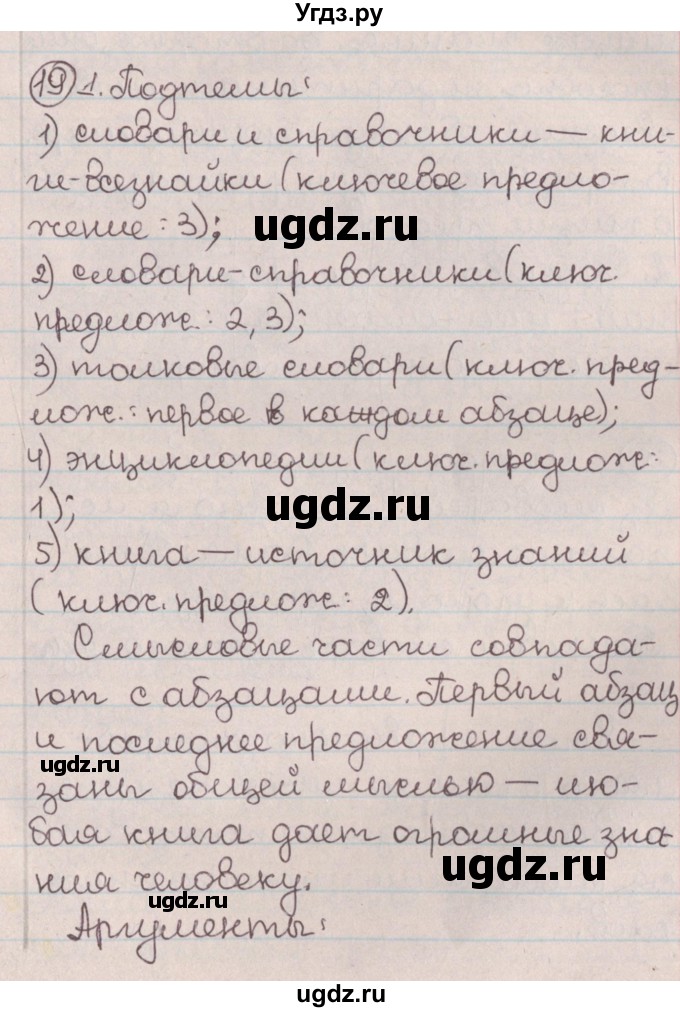 Угдз.ру
19 1. Подтемы:
1) словари и справочники — кни-
ги-всезнайки (ключевое предло-
жение : 3);
ugdz.ru
2) словари-справочники (ключ.
предлож.: 2, 3);
3) толковые словари (ключ. пред-
лож.: первое в каждом абзаце);
4) энциклопедии (ключ. предлож.:
1);
ugdz.ru
5) книга — источник знаний
(ключ. предлож: 2).
Смысловые части совпада-
ют с абзацами. Первый абзац
и последнее предложение свя-
ugdz.ru
заны общей мыслью — лю-
бая книга дает огромные зна-
ugdz.ru
ния человеку.
ugdz.ru
Аргументы:
ugdz.ru